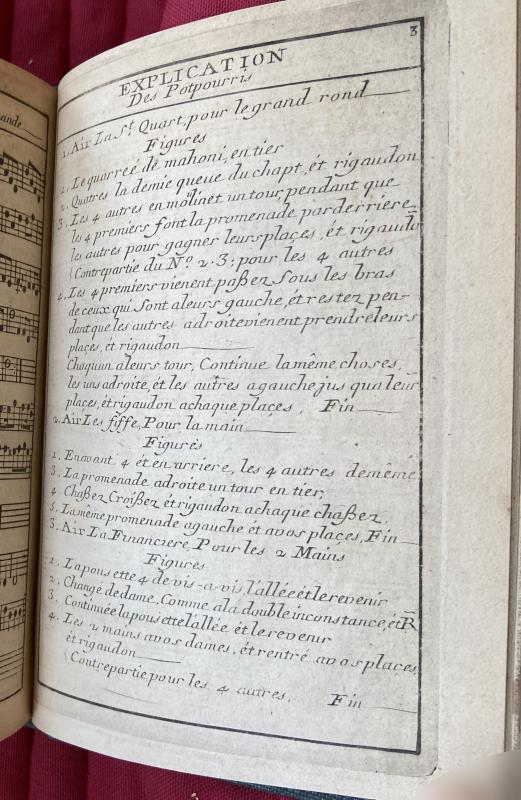 ande
3
EXPLICATION
Des Potpourris
1. Air La St. Quart, pour le grand rond
Figures
1. Le quarreé de mahoni, en tier
2. Quatres la demie queue du chapt, ét rigaudon
3. Les 4 autres en molinet un tour, pendant que
les 4 premiers font la promenade par derriere
les autres pour gagner leurs plaçes, ét rigaudō
(Contrepartie du No. 2.3: pour les 4 autres
4. Les 4 premiers vienent paßez Sous les bras
de ceux qui Sont a leurs gauche, ét restez pen-
dant que les autres adroite vienent prendre leurs
places, ét rigaudon
Chaquun a leurs tour, Continue la même choses,
les uns adroite, ét les autres a gauche jus qua leur
places, ét rigaudon achaque plaçes, Fin
2. Air Les fiffe, Pour la main
Figures
1. Enavant 4 ét en arriere, les 4 autres demême
3. La promenade adroite un tour en tier,
4. Chaßez Croißez ét rigaudon achaque chaßez
5. La même promenade agauche ét avos plaçes, Fin
3. Air La Financiere, Pour les 2 Mains
Figures
1. La pousette 4 de vis-a-vis, l'allée ét le revenir
2. Changé de dame, Comme a la double inconstance, ét R̄
3. Continuée la pousette l'allée ét le revenir
4. Les 2 mains avos dames, ét rentré avos plaçes,
ét rigaudon
(Contrepartie pour les 4 autres, Fin